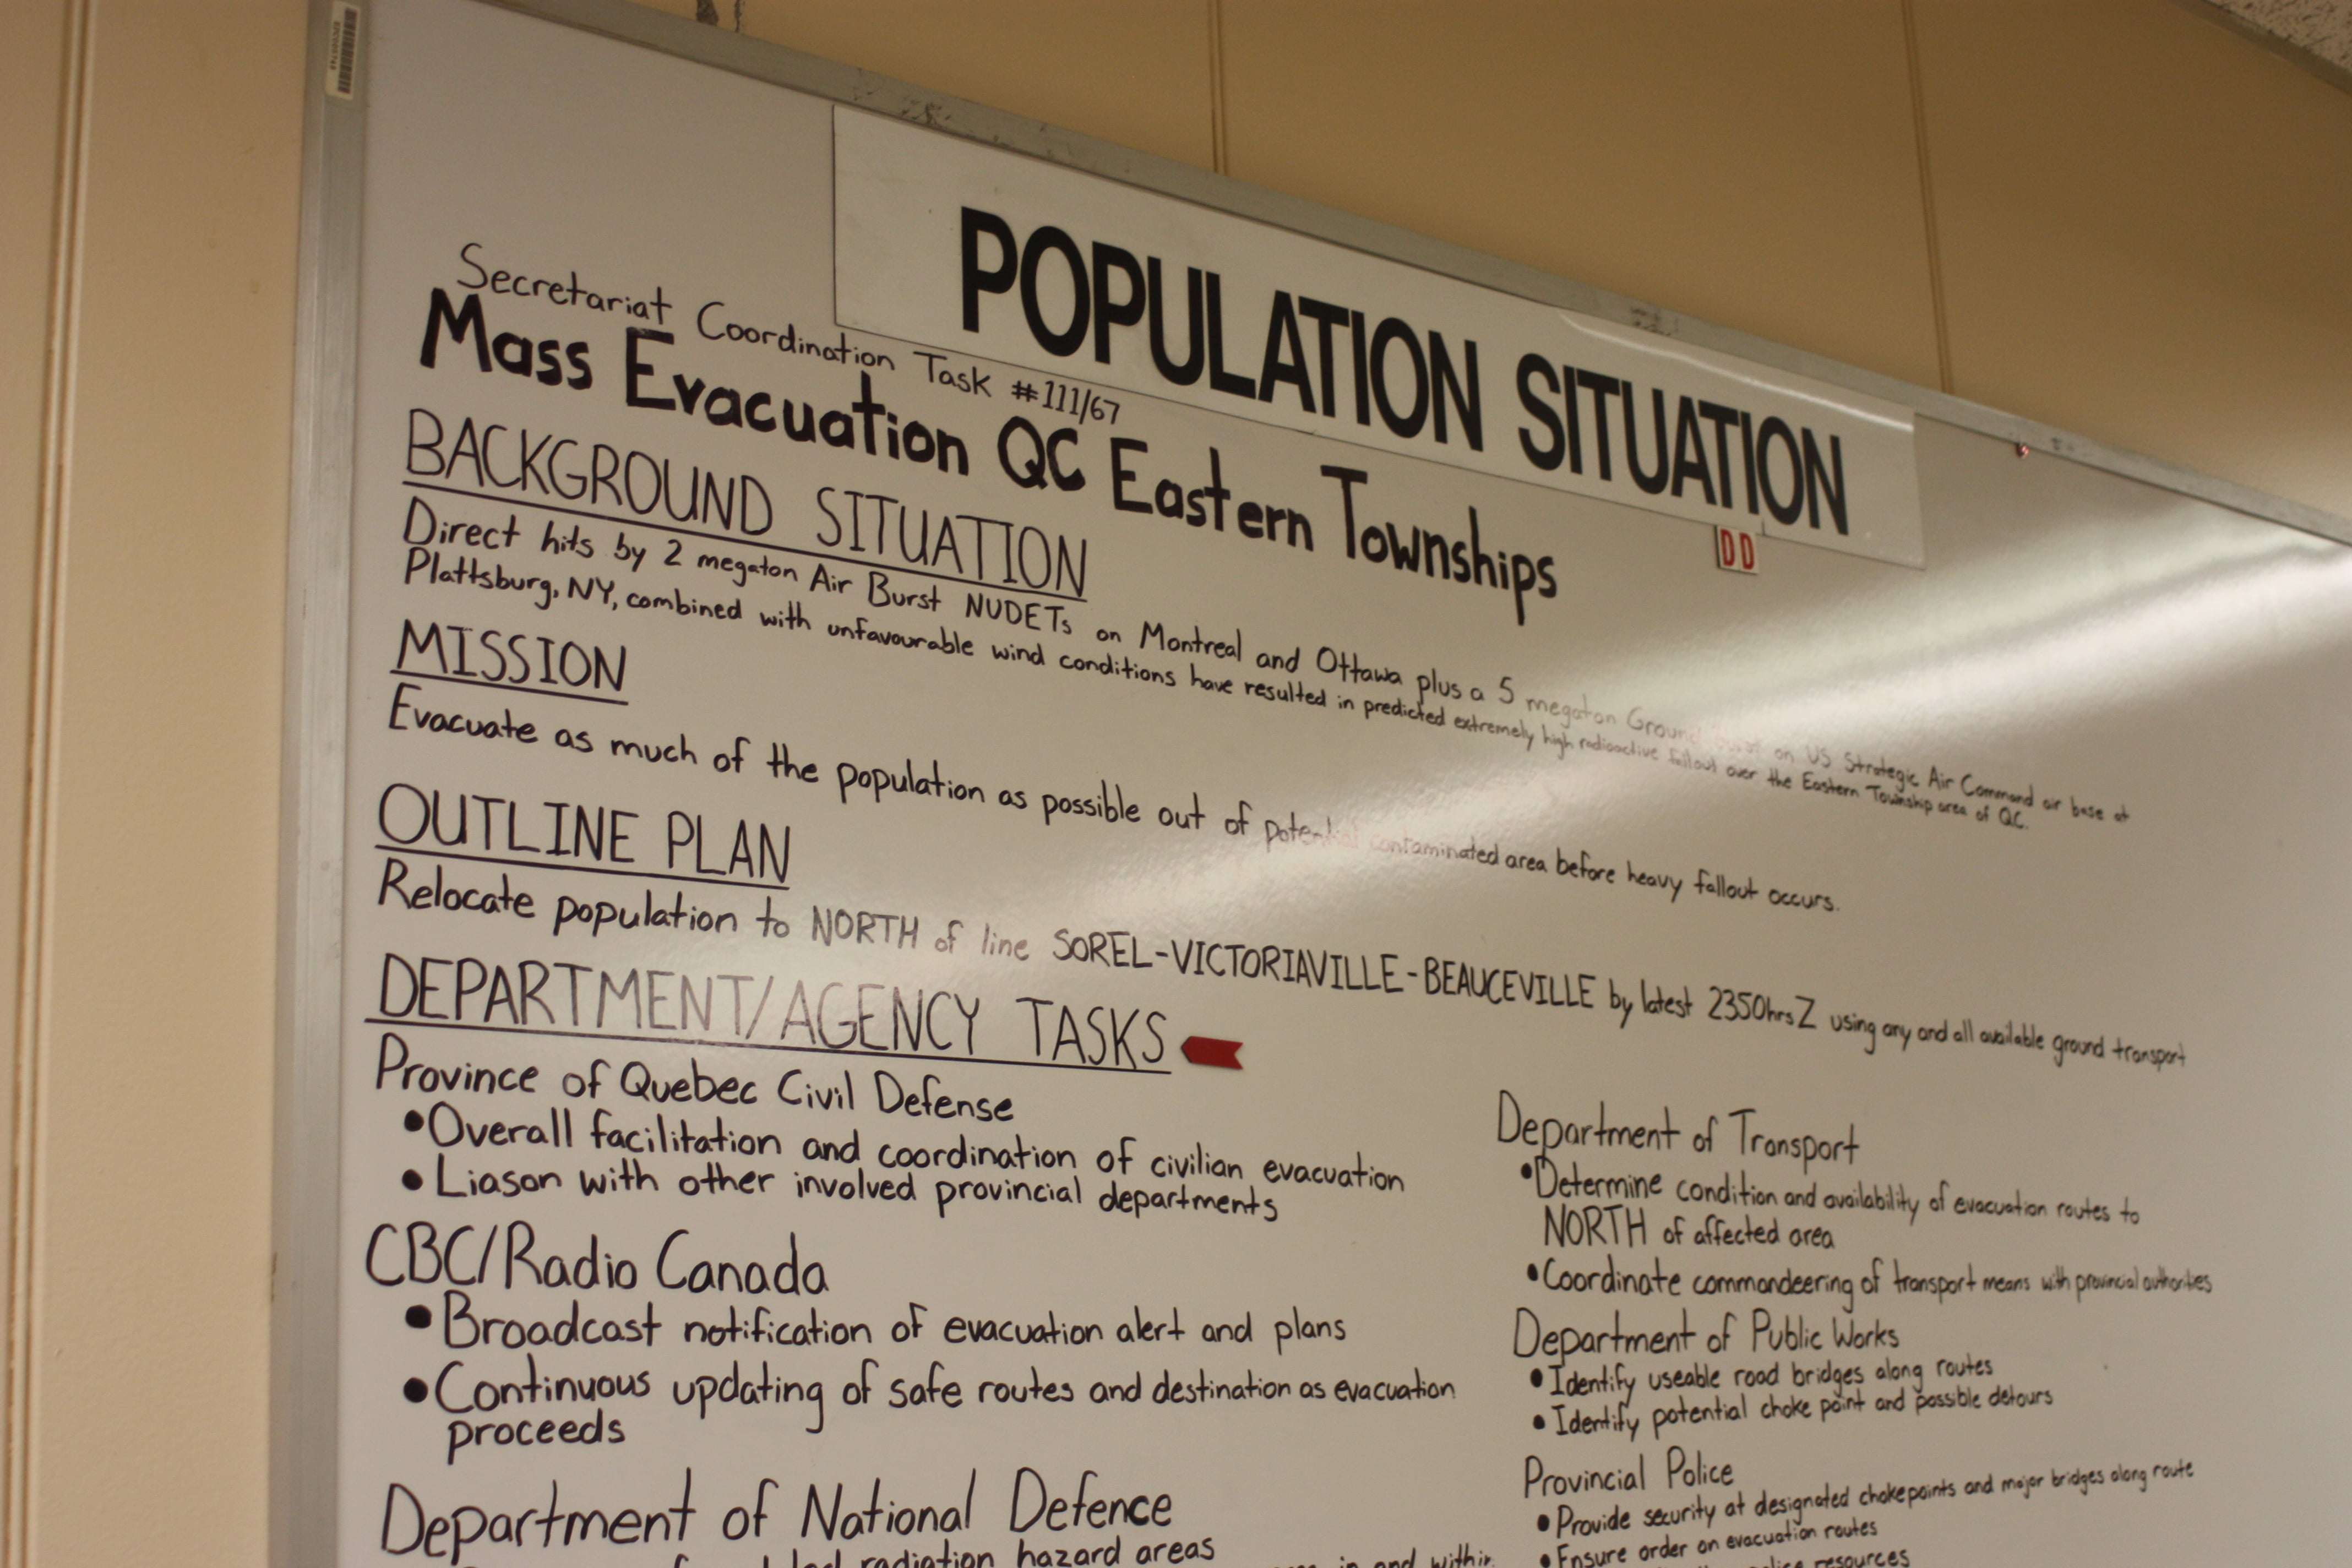 POPULATION SITUATION
DD
Secretariat Coordination Task #111/67
Mass Evacuation QC Eastern Townships
BACKGROUND SITUATION
Direct hits by 2 megaton Air Burst NUDETs on Montreal and Ottawa plus a 5 megaton Ground burst on US Strategic Air Command air base at
Plattsburg, NY, combined with unfavourable wind conditions have resulted in predicted extremely high radioactive fallout over the Eastern Township area of QC.
MISSION
Evacuate as much of the population as possible out of potential contaminated area before heavy fallout occurs.
OUTLINE PLAN
Relocate population to NORTH of line SOREL-VICTORIAVILLE-BEAUCEVILLE by latest 2350hrs Z using any and all available ground transport
DEPARTMENT/AGENCY TASKS
Province of Quebec Civil Defense
•Overall facilitation and coordination of civilian evacuation
•Liason with other involved provincial departments
CBC/Radio Canada
•Broadcast notification of evacuation alert and plans
•Continuous updating of safe routes and destination as evacuation
proceeds
Department of National Defence
radiation hazard areas
in and within
Department of Transport
•Determine condition and availability of evacuation routes to
NORTH of affected area
•Coordinate commandeering of transport means with provincial authorities
Department of Public Works
•Identify useable road bridges along routes
•Identify potential choke point and possible detours
Provincial Police
•Provide security at designated chokepoints and major bridges along route
•Ensure order on evacuation routes
police resources